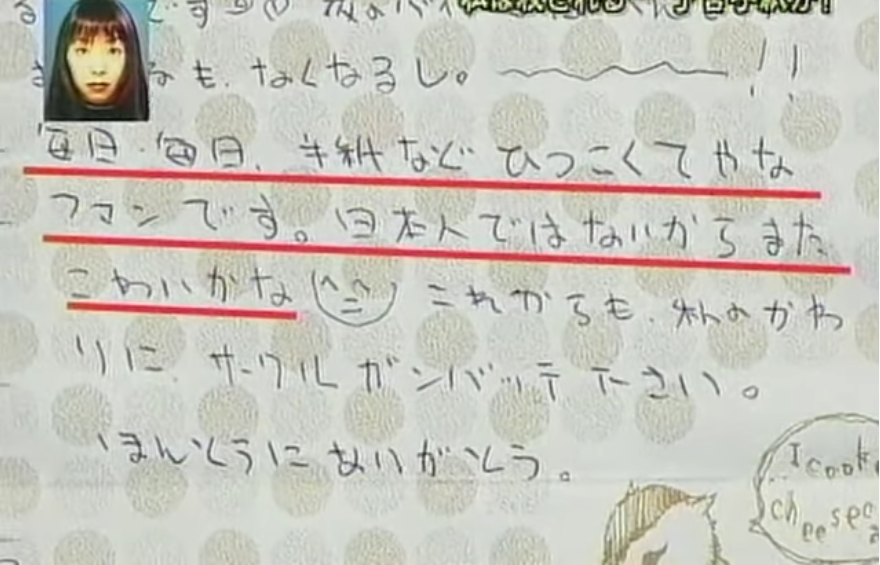 も、なくなるし。!!
毎日、毎日、手紙など ひつこくてやな
ファンです。日本人ではないからまた
こわいかな これからも、私のかわ
りに、サークルガンバッテ下さい。
ほんとうにありがとう。
I cook
cheesec